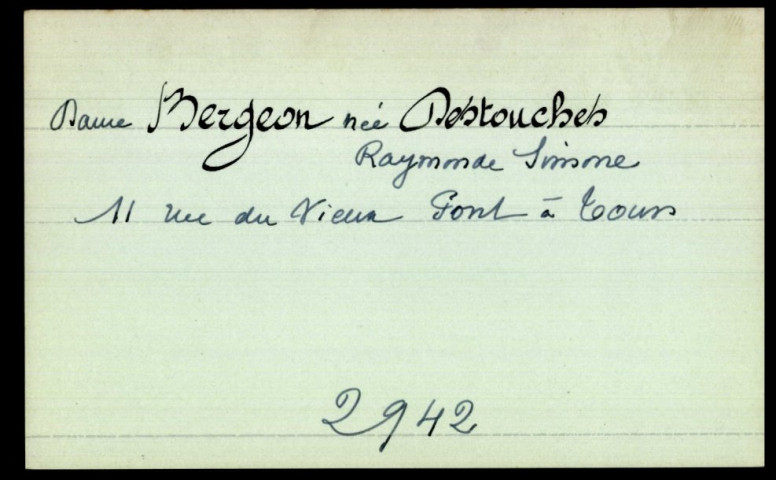 Dame Bergeon née Destouches
Raymonde Simone
11 rue du Vieux Pont à Tours
2942